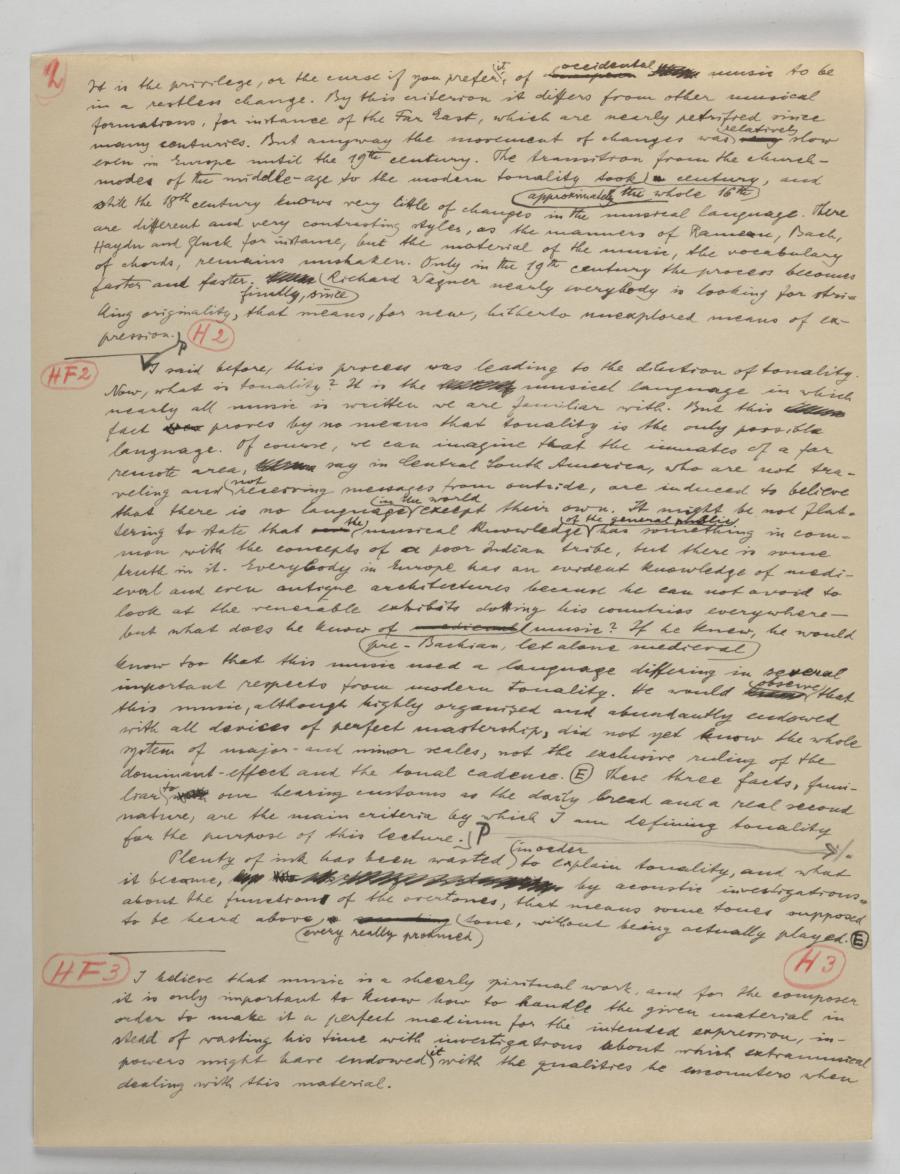 2
It is the privilege, or the curse if you prefer it, of occidental music to be
in a restless change. By this criterion it differs from other musical
formations, for instance of the Far East, which are nearly petrified since
many centuries. But anyway the movement of changes was relatively slow
even in Europe until the 19th century. The transition from the church-
modes of the middle-age to the modern tonality took approximately the whole 16th century, and
still the 18th century knows very little of changes in the musical language. There
are different and very contrasting styles, as the manners of Rameau, Bach,
Haydn and Gluck for instance, but the material of the music, the vocabulary
of chords, remains unshaken. Only in the 19th century the process becomes
faster and faster. finally, since Richard Wagner nearly everybody is looking for stri-
king originality, that means, for new, hitherto unexplored means of ex-
pression.
H2
HF2
I said before, this process was leading to the dilution of tonality.
Now, what is tonality? It is the musical language in which
nearly all music is written we are familiar with. But this
fact proves by no means that tonality is the only possible
language. Of course, we can imagine that the inmates of a far
remote area, say in Central South America, who are not tra-
veling and not receiving messages from outside, are induced to believe
that there is no language in the world except their own. It might be not flat-
tering to state that the musical knowledge of the general public has something in com-
mon with the concepts of a poor Indian tribe, but there is some
truth in it. Everybody in Europe has an evident knowledge of medi-
eval and even antique architectures because he can not avoid to
look at the venerable exhibits dotting his countries everywhere—
but what does he know of pre-Bachian, let alone medieval music? If he knew, he would
know too that this music used a language differing in several
important respects from modern tonality. He would observe that
this music, although highly organized and abundantly endowed
with all devices of perfect mastership, did not yet know the whole
system of major- and minor scales, not the exclusive ruling of the
dominant-effect and the tonal cadence. E These three facts, fami-
liar to our hearing customs as the daily bread and a real second
nature, are the main criteria by which I am defining tonality
for the purpose of this lecture.
Plenty of ink has been wasted in order to explain tonality, and what
it became, by acoustic investigations
about the functions of the overtones, that means some tones supposed
to be heard above every really produced tone, without being actually played. E
H3
HF3
I believe that music is a sheerly spiritual work, and for the composer
it is only important to know how to handle the given material in
order to make it a perfect medium for the intended expression, in-
stead of wasting his time with investigations about which extramusical
powers might have endowed it with the qualities he encounters when
dealing with this material.